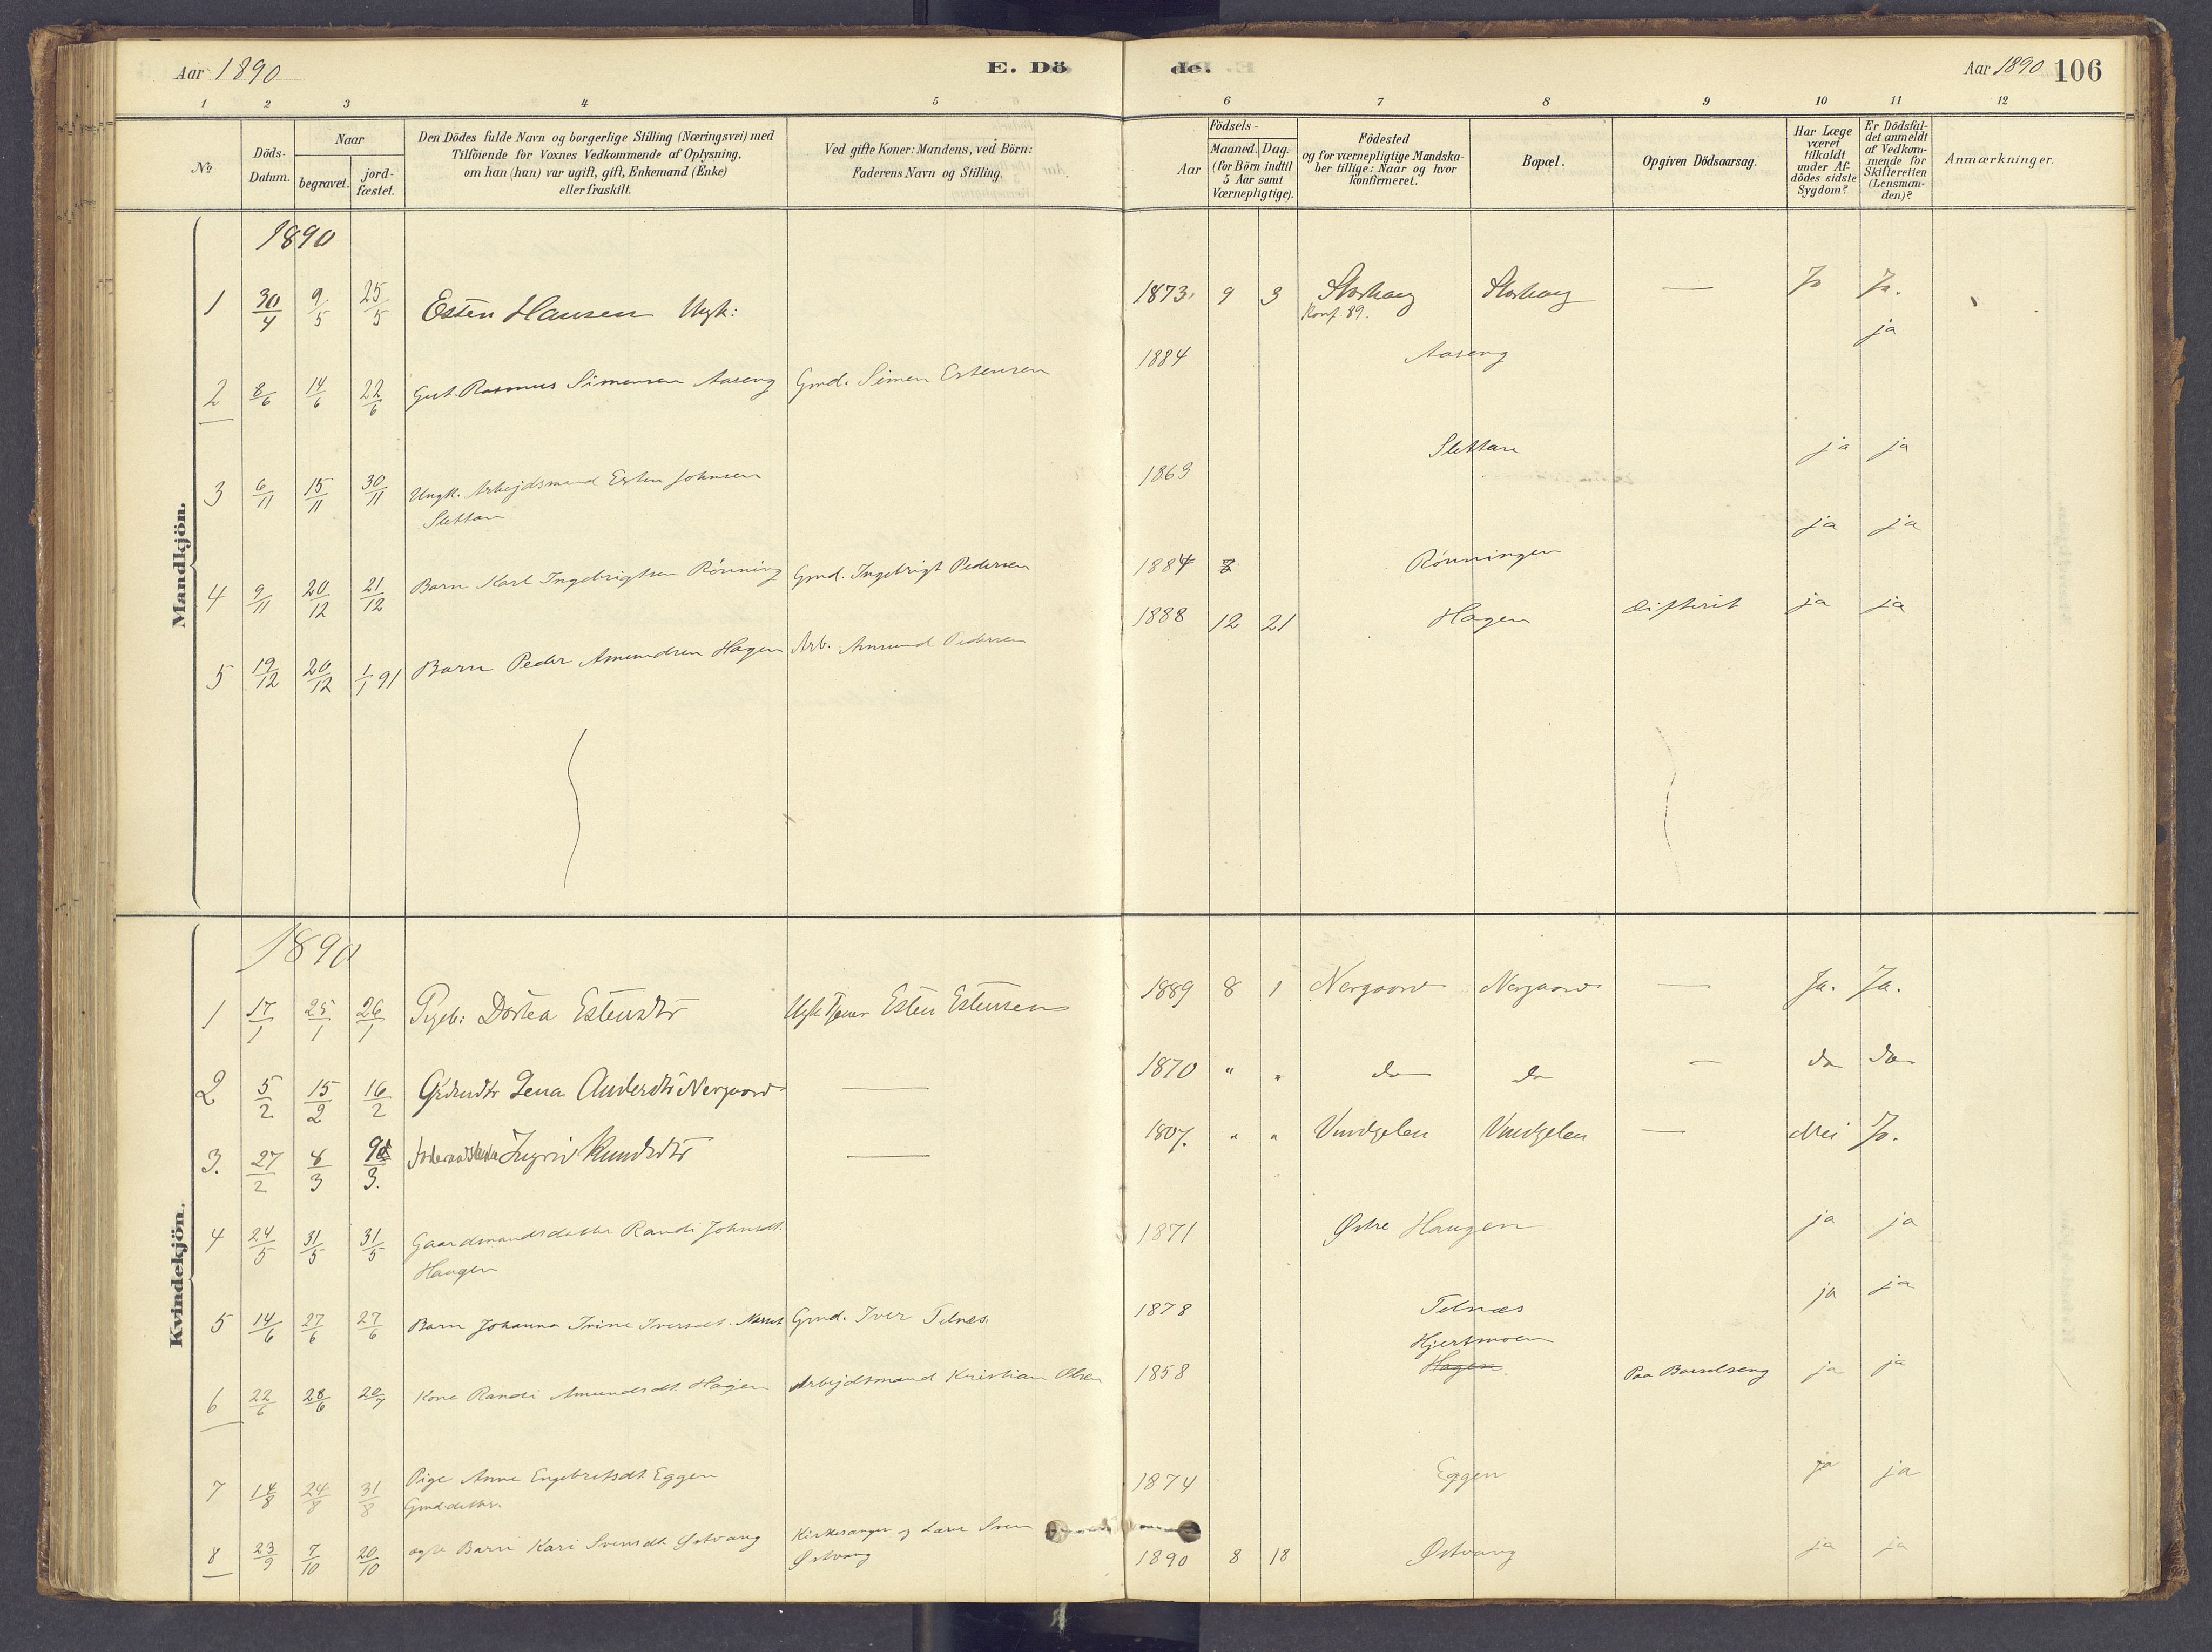 Aar 1890 E. Dö de. Aar 1890 106
1 2 3 4 5 6 7 8 9 10 11 12
№
Döds-
Datum.
Naar
begravet.
jord-
fæstet.
Den Dödes fulde Navn og borgerlige Stilling (Næringsvei) med
Tilföiende for Voxnes Vedkommende af Oplysning,
om han (hun) var ugift, gift, Enkemand (Enke)
eller fraskilt.
Ved gifte Koner: Mandens, ved Börn:
Faderens Navn og Stilling.
Födsels-
Aar
Maaned. Dag.
(for Börn indtil
5 Aar samt
Værnepligtige).
Födested
og for værnepligtige Mandska-
ber tillige: Naar og hvor
konfirmeret.
Bopæl.
Opgiven Dödsaarsag.
Har Læge
været
tilkaldt
under Af-
dödes sidste
Sygdom?
Er Dödsfal-
det anmeldt
af Vedkom-
mende for
Skifteretten
(Lensman-
den)?
Anmærkninger.
Mandkjön.
1890
1 30/4 9/5 25/5 Esten Hansen Ungk: 1873 9 3 Storhaug Storhaug — Ja Ja.
Konf. 89.
2 8/6 14/6 22/6 Gut Rasmus Simensen Aaseng Gmd. Simen Estensen 1884 Aaseng ja
3 6/11 15/11 30/11 Ungk. Arbejdsmand Esten Johnsen 1869 Slettan ja ja
Slettan
4 9/11 20/12 21/12 Barn Karl Ingebrigtsen Rønning Gmd. Ingebrigt Pedersen 1884 Rønningen ja ja
5 19/12 20/12 1/1 91 Barn Peder Amundsen Hagen Arb. Amund Pedersen 1888 12 21 Hagen Difterit ja ja
Kvindekjön.
1890
1 17/1 25/1 26/1 Pigeb: Dortea Estensdtr Ugk Tjener Esten Estensen 1889 8 1 Nergaard Nergaard — Ja. Ja.
2 5/2 15/2 16/2 Grdmdtr Lena Andersdtr Nergaard — 1870 " " do do — do do
3. 27/2 8/3 9/3. Ingrid Knudsdtr — 1807. " " Vindgelen Vindgelen — Nei Ja.
4 24/5 31/5 31/5 Gaardmandsdatter Randi Johnsdt. 1871 Østre Haugen ja ja
Haugen
5 14/6 27/6 27/6 Barn Johanna Trine Iversdt. Gmd. Iver Telnæs. 1878 Telnæs ja ja
Hjertmoen
6 22/6 28/6 20/7 Kone Randi Amundsdt. Hagen Arbejdsmand Kristian Olsen 1858 Hagen Paa Barselseng ja ja
7 14/8 24/8 31/8 Pige Anne Engebretsdt. Eggen 1874 Eggen ja ja
Gmd.datter.
8 23/9 7/10 20/10 ægte Barn Kari Svensdt. Østvang Kirkesanger og Lærer Sven 1890 8 18 Østvang ja ja
Østvang